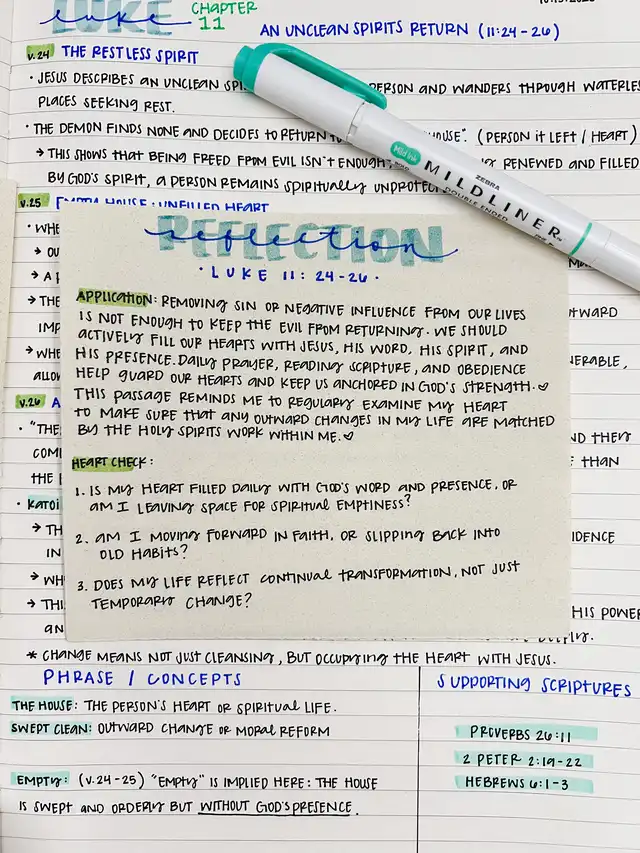 LUKE
luke
CHAPTER
11
AN UNCLEAN SPIRITS RETURN (11:24-26)
v.24 THE RESTLESS SPIRIT
• JESUS DESCRIBES AN UNCLEAN PERSON AND WANDERS THROUGH
PLACES SEEKING REST.
• THE DEMON FINDS NONE AND DECIDES TO RETURN HOUSE". (PERSON IT LEFT / HEART)
→ THIS SHOWS THAT BEING FREED FROM EVIL ISN'T ENOUGH; RENEWED AND FILLED
BY GOD'S SPIRIT, A PERSON REMAINS SPIRITUALLY
Mild ink
ZEBRA
MILDLINER
DOUBLE ENDED
v.25 EMPTY HOUSE: UNFILLED HEART
REFLECTION
reflection
• LUKE 11:24-26 •
APPLICATION: REMOVING SIN OR NEGATIVE INFLUENCE FROM OUR LIVES
IS NOT ENOUGH TO KEEP THE EVIL FROM RETURNING. WE SHOULD
ACTIVELY FILL OUR HEARTS WITH JESUS, HIS WORD, HIS SPIRIT, AND
HIS PRESENCE. DAILY PRAYER, READING SCRIPTURE, AND OBEDIENCE
HELP GUARD OUR HEARTS AND KEEP US ANCHORED IN GOD'S STRENGTH. ♡
THIS PASSAGE REMINDS ME TO REGULARY EXAMINE MY HEART
TO MAKE SURE THAT ANY OUTWARD CHANGES IN MY LIFE ARE MATCHED
BY THE HOLY SPIRITS WORK WITHIN ME. ♡
HEART CHECK:
1. IS MY HEART FILLED DAILY WITH GOD'S WORD AND PRESENCE, OR
AM I LEAVING SPACE FOR SPIRITUAL EMPTINESS?
2. AM I MOVING FORWARD IN FAITH, OR SLIPPING BACK INTO
OLD HABITS?
3. DOES MY LIFE REFLECT CONTINUAL TRANSFORMATION, NOT JUST
TEMPORARY CHANGE?
v.26
THAN
HIS POWER
* CHANGE MEANS NOT JUST CLEANSING, BUT OCCUPYING THE HEART WITH JESUS.
PHRASE / CONCEPTS
THE HOUSE: THE PERSON'S HEART OR SPIRITUAL LIFE.
SWEPT CLEAN: OUTWARD CHANGE OR MORAL REFORM
EMPTY: (v.24-25) "EMPTY" IS IMPLIED HERE: THE HOUSE
IS SWEPT AND ORDERLY BUT WITHOUT GOD'S PRESENCE.
SUPPORTING SCRIPTURES
PROVERBS 26:11
2 PETER 2:19-22
HEBREWS 6:1-3